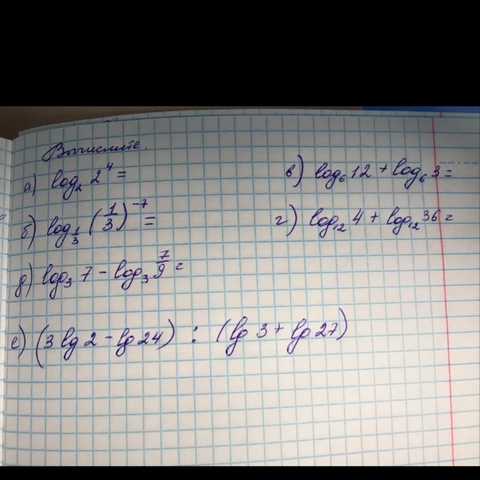 Вычислите.
а) log₂ 2⁴ =
в) log₆ 12 + log₆ 3 =
б) log_{1/3} (1/3)⁻⁷ =
г) log₁₂ 4 + log₁₂ 36 =
д) log₃ 7 - log₃ 7/9 =
е) (3 lg 2 - lg 24) : (lg 3 + lg 27)